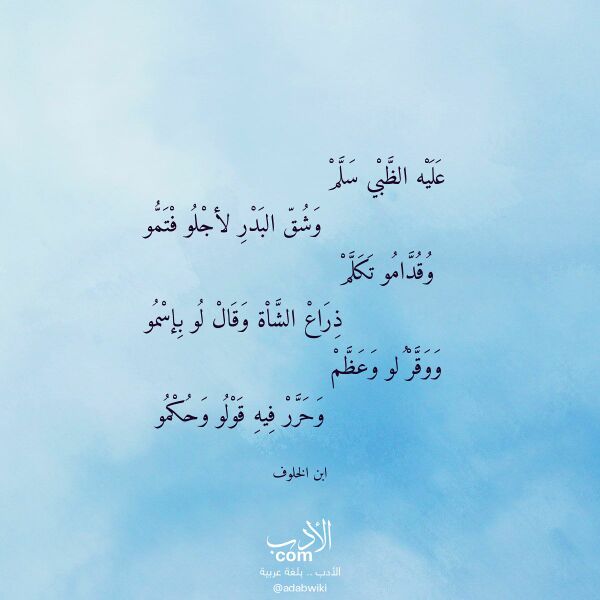 عَلَيْه الظَّبْي سَلَّمْ
وَشُقّ البَدْرِ لأجْلُو فْتَمُّو
وُقُدَّامُو تَكَلَّمْ
ذِرَاعْ الشَّاْة وَقَالْ لُو بِإسْمُو
وَوَقَّرْ ُلو وَعَظَّمْ
وَحَرَّرْ فِيهِ قَوْلُو وَحُكْمُو
ابن الخلوف
الأدب
com
الأدب .. بلغة عربية
@adabwiki